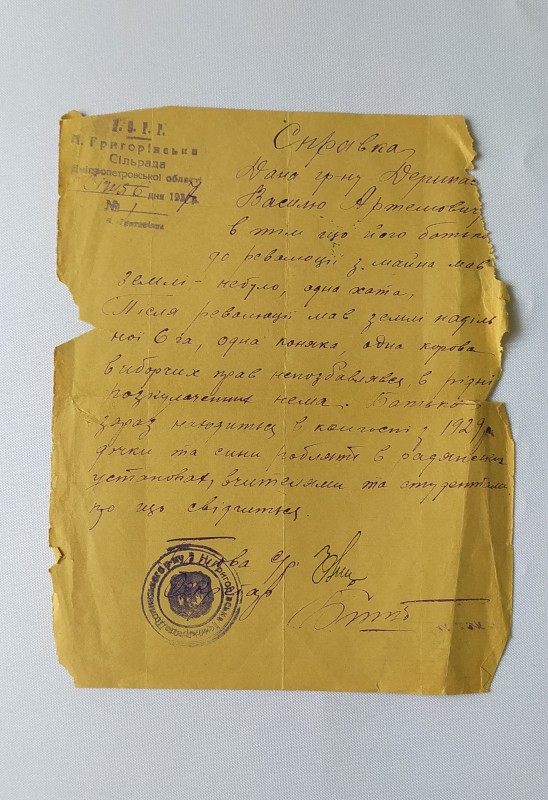 У. С. Р. Р.
Григорівська
Сільрада
Дніпропетровської області
дня 193
№ 1
Справка
Дана гр-ну
Василю Артемовичу
в тім що його батько
до революції з майна мав
землі небуло, одна хата,
Після революції мав землі наділь
ної 6 га, одна коняка, одна корова
виборчих прав непозбавлявся, в рідні
розкулачених нема. Батько
зараз находиться в колгоспі з 1929 р
дочки та сини роблять в радянських
установах, вчителями та студентами
що й свідчиться.
Голова с/р
Секретар